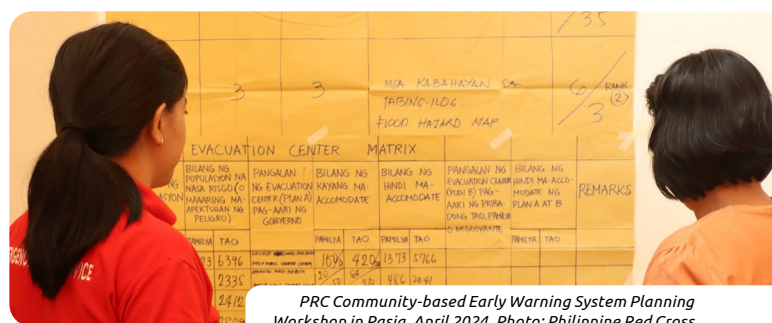 /35
3 3 MGA KABAHAYAN SA 6/3 RANK
TABING-ILOG (2)
FLOOD HAZARD MAP
EVACUATION CENTER MATRIX
BILANG NG POPULASYON NA NASA RISGO (O MAAARING MA-APEKTUHAN NG PELIGRO)
PANGALAN NG EVACUATION CENTER (PLAN A) PAG-AARI NG GOBYERNO
BILANG NG KAYANG MA-ACCOMODATE
BILANG NG HINDI MA-ACCOMODATE
PANGALAN NG EVACUATION CENTER (PLAN B) PAG-AARI NG PRIBADONG TAO, PAMILYA O NEGOSYANTE
BILANG NG HINDI MA-ACCOMODATE NG PLAN A AT B
REMARKS
PAMILYA TAO PAMILYA TAO PAMILYA TAO PAMILYA TAO
23 6396 1373 5766
2335 486
2412
VICE
PRC Community-based Early Warning System Planning
Workshop in Pasig, April 2024. Photo: Philippine Red Cross